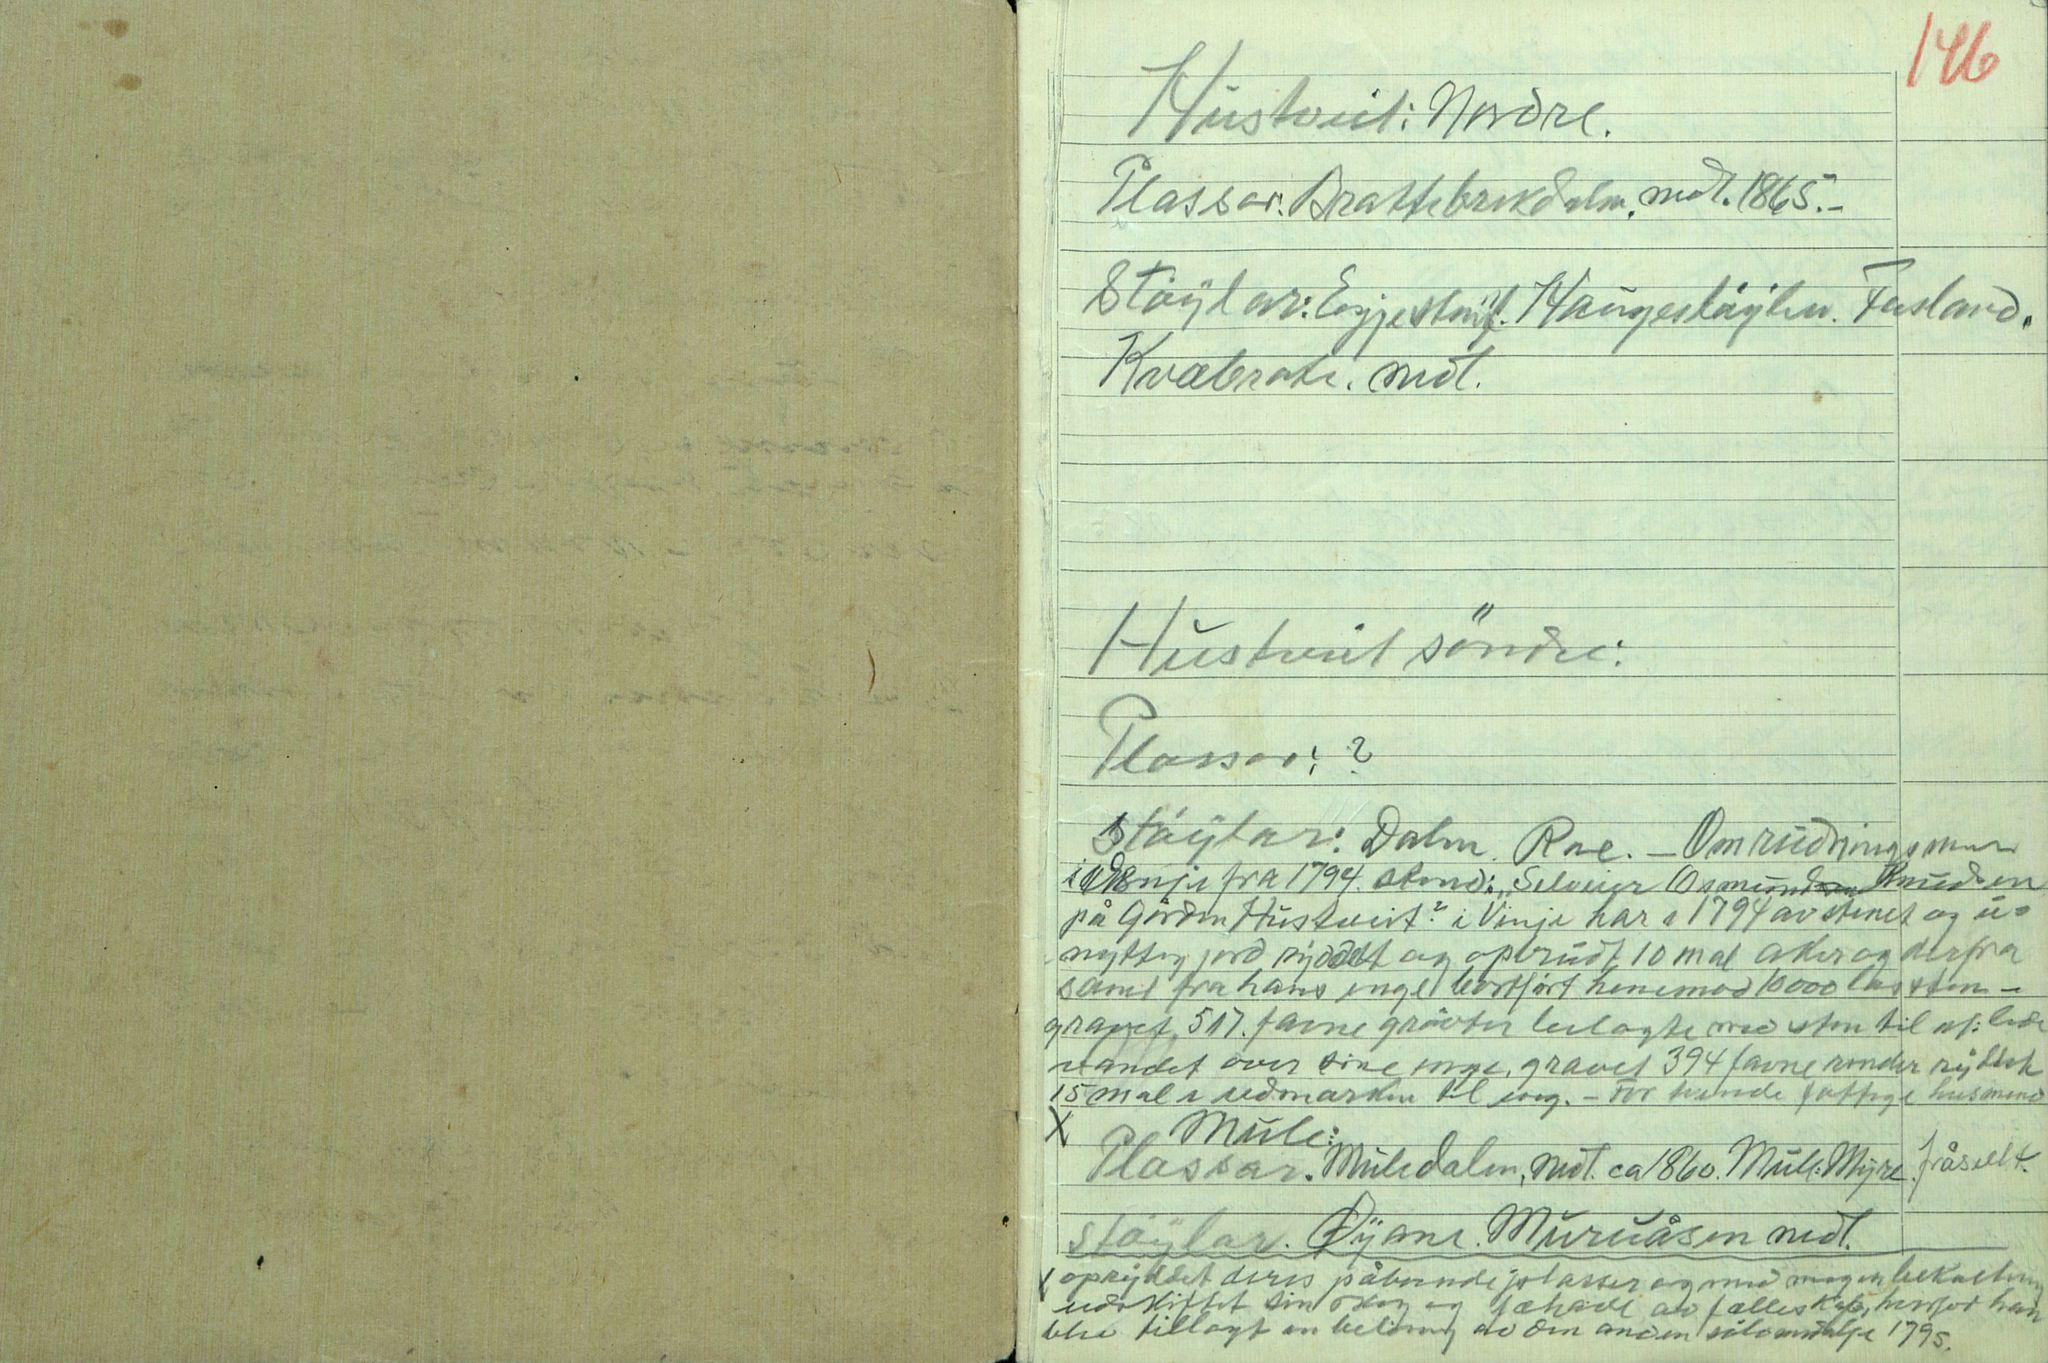 146
Hustveit: Nordre.
Plassar. Brattebrekdalen, nedl. 1865.-
Støylar: Eggjestøyl. Haugestøylen. Fusland.
Kvæbrote. nedl.
Hustveit söndre:
Plassar: ?
Støylar: Dalen. Roe. – Om rudningsmenn
i Vinje fra 1794. stend: Selveier Osmund Knudsen
på Gården Hustveit? i Vinje har i 1794 av stenet og u=
nyttig jord ryddet og opbrudt 10 mål aker og derfra
samt fra hans enge bortført henimod 10000 las sten –
gravet 517. favne grøvter belagte med sten til at lede
vandet over sine enge, gravet 394 favne render ryddet
15 mål i udmarken til eng. – For tvende fattige husmend
X Mule:
Plassar. Muledalen, nedl. ca 1860. Mule-Myre. fråselt.
støylar. Øyane. Muruåsen nedl.
X opryddet deres påboende plasser og med megen bekostning
udskiftet sin skog og fæhave av fælleskap, herfor han
blev tillagt en belöning av den anden sölvmedalje 1795.